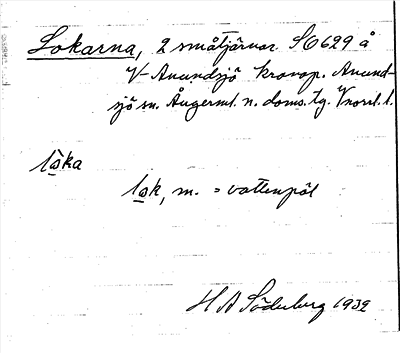 Lokarna, 2 småtjärnar SO629 å
V-Anundsjö kronop. Anund-
sjö sn. Ångerml. n. doms. tg. Vnorrl. l.
lo̠ka
lo̠k, m. = vattenpöl
H A Söderberg 1932